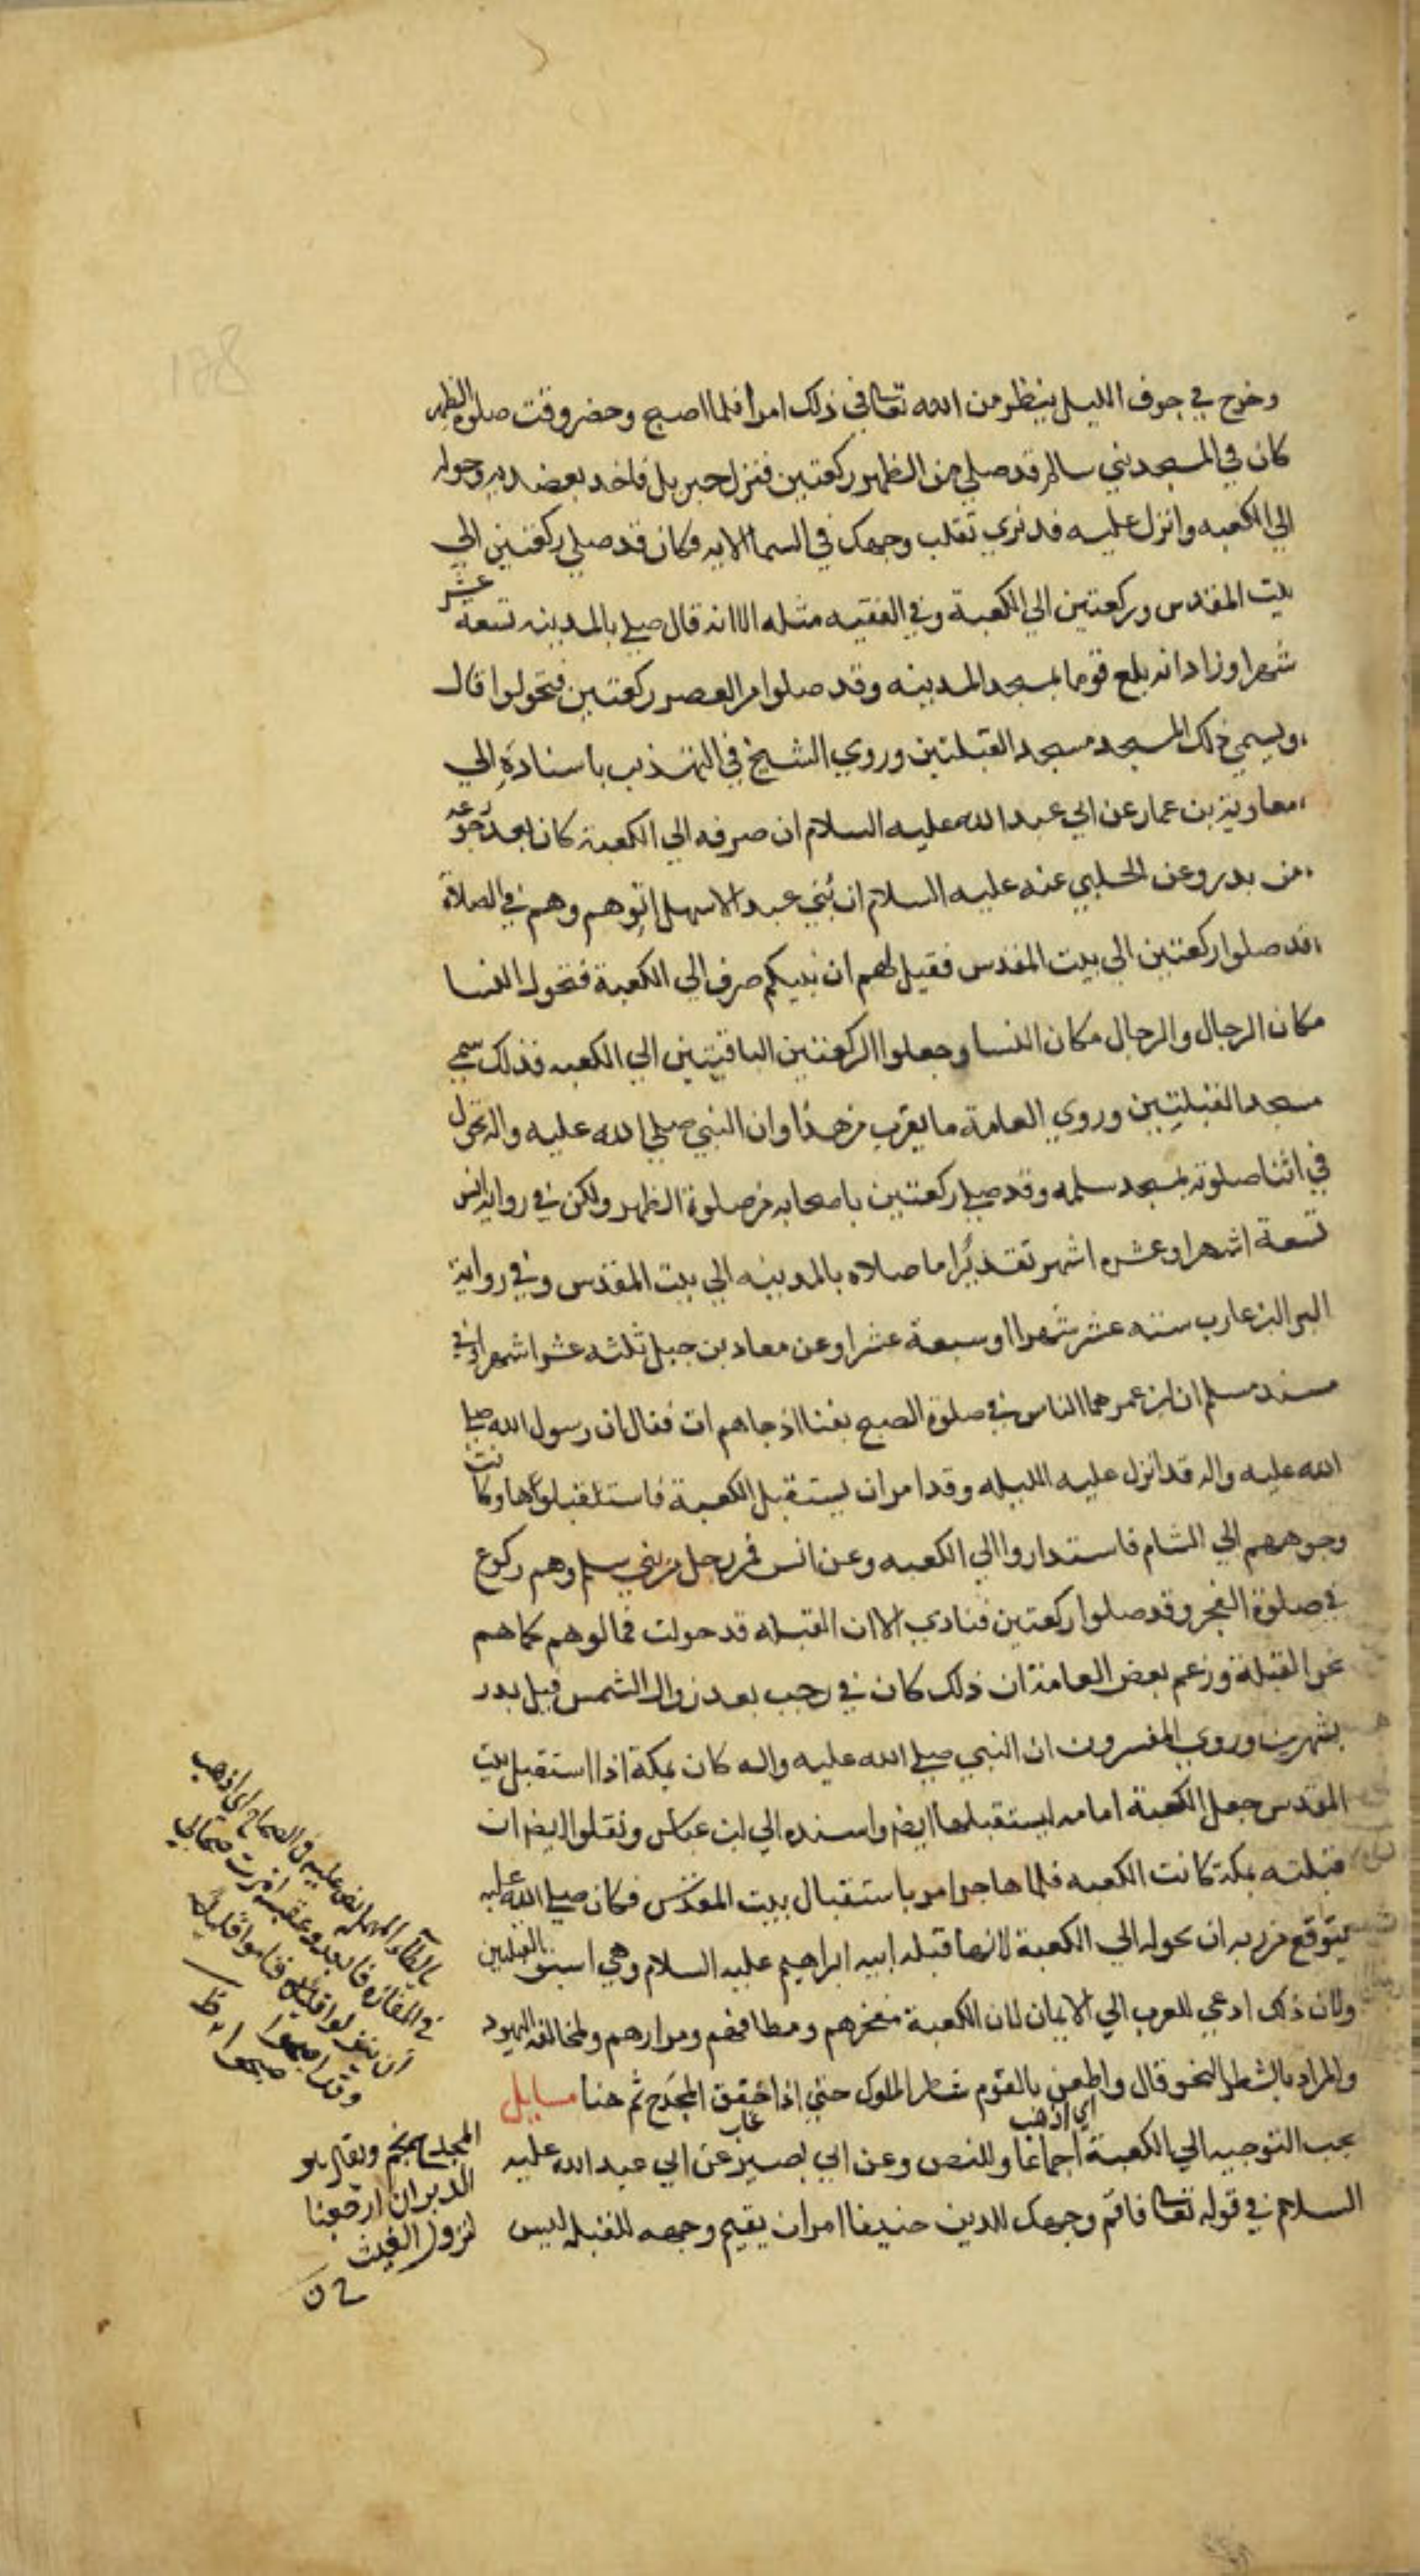 وخرج في جوف الليل ينظر من الله تعالى في ذلك امرا فلما اصبح وحضر وقت صلوة الظهر
كان في المسجد بني سالم قد صلي من الظهر ركعتين فنزل جبريل فاخد بعضديه وحوله
الي الكعبه وانزل عليه قد نري تقلب وجهك في السما الايه فكان قد صلي ركعتين الي
بيت المقدس وركعتين الي الكعبة وفي الفقيه مثله الا انه قال صلي بالمدينه تسعة عشر
شهرا وزاد انه بلع قوما بمسجد المدينه وقد صلوا من العصر ركعتين فتحولوا قال
ويسمي ذلك المسجد مسجد القبلتين وروي الشيخ في التهذيب باسناده الي
معاوية بن عمار عن ابي عبد الله عليه السلام ان صرفه الي الكعبة كان بعد رجوعه
من بدر وعن الحلبي عنه عليه السلام ان بني عبد الاسهل اتوهم وهم في الصلاة
قد صلوا ركعتين الي بيت المقدس فقيل لهم ان نبيكم صرف الي الكعبة فتحول النسا
مكان الرجال والرجال مكان النسا وجعلوا الركعتين الباقيتين الي الكعبه فذلك سمي
مسجد القبلتين وروي العامة ما يقرب من هذا وان النبي صلي الله عليه واله تحول
في اثنا صلوته بمسجد سلمه وقد صلي ركعتين باصحابه من صلوة الظهر ولكن في رواية انس
تسعة اشهر او عشره اشهر تقديرا ما صلاه بالمدينه الي بيت المقدس وفي رواية
البرا ابن عازب ستة عشر شهرا او سبعة عشر وعن معاد بن جبل ثلثه عشر اشهرا وفي
مسند مسلم ان ابن عمر هما الناس في صلوة الصبح بقبا اذ جاهم ات فقال ان رسول الله صلي
الله عليه واله قد انزل عليه الليله وقد امر ان يستقبل الكعبة فاستقبلوها وكانت
وجوههم الي الشام فاستداروا الي الكعبه وعن انس فمر رجل من بني سلم وهم ركوع
في صلوة الفجر وقد صلوا ركعتين فنادي الا ان القبله قد حولت فمالوهم كما هم
نحو القبلة وزعم بعض العامة ان ذلك كان في رجب بعد زوال الشمس قبل بدر
بشهرين وروي المفسرون ان النبي صلي الله عليه واله كان بمكة اذا استقبل بيت
المقدس جعل الكعبة امامه ليستقبلها ايض واسنده الي ابن عباس ونقلوا ايض ان
قبلته بمكة كانت الكعبه فلما هاجر امر باستقبال بيت المقدس فكان صلي الله عليه
يتوقع من ربه ان يحوله الي الكعبة لانها قبله ابيه ابراهيم عليه السلام وهي اسبق القبلتين
ولان ذلك ادعي للعرب الي الايمان لان الكعبة مفخرهم ومطافهم ومزارهم ولمخالفة اليهود
والمراد بالشطر النحو قال واطعن بالقوم شطر الملوك حتي اذا خفق المجدح ثم هنا مسايل
اي اذهب
غاب
يجب التوجيه الي الكعبة اجماعا وللنص وعن ابي بصير عن ابي عبد الله عليه
السلام في قوله تعالى فاقم وجهك للدين حنيفا امر ان يقيم وجهه للقبله ليس
بالطآء المهمله نص عليه في الصحاح اي اذهب
في المفازه
المجدح نجم ويقال هو
الدبران
لنزول الغيث